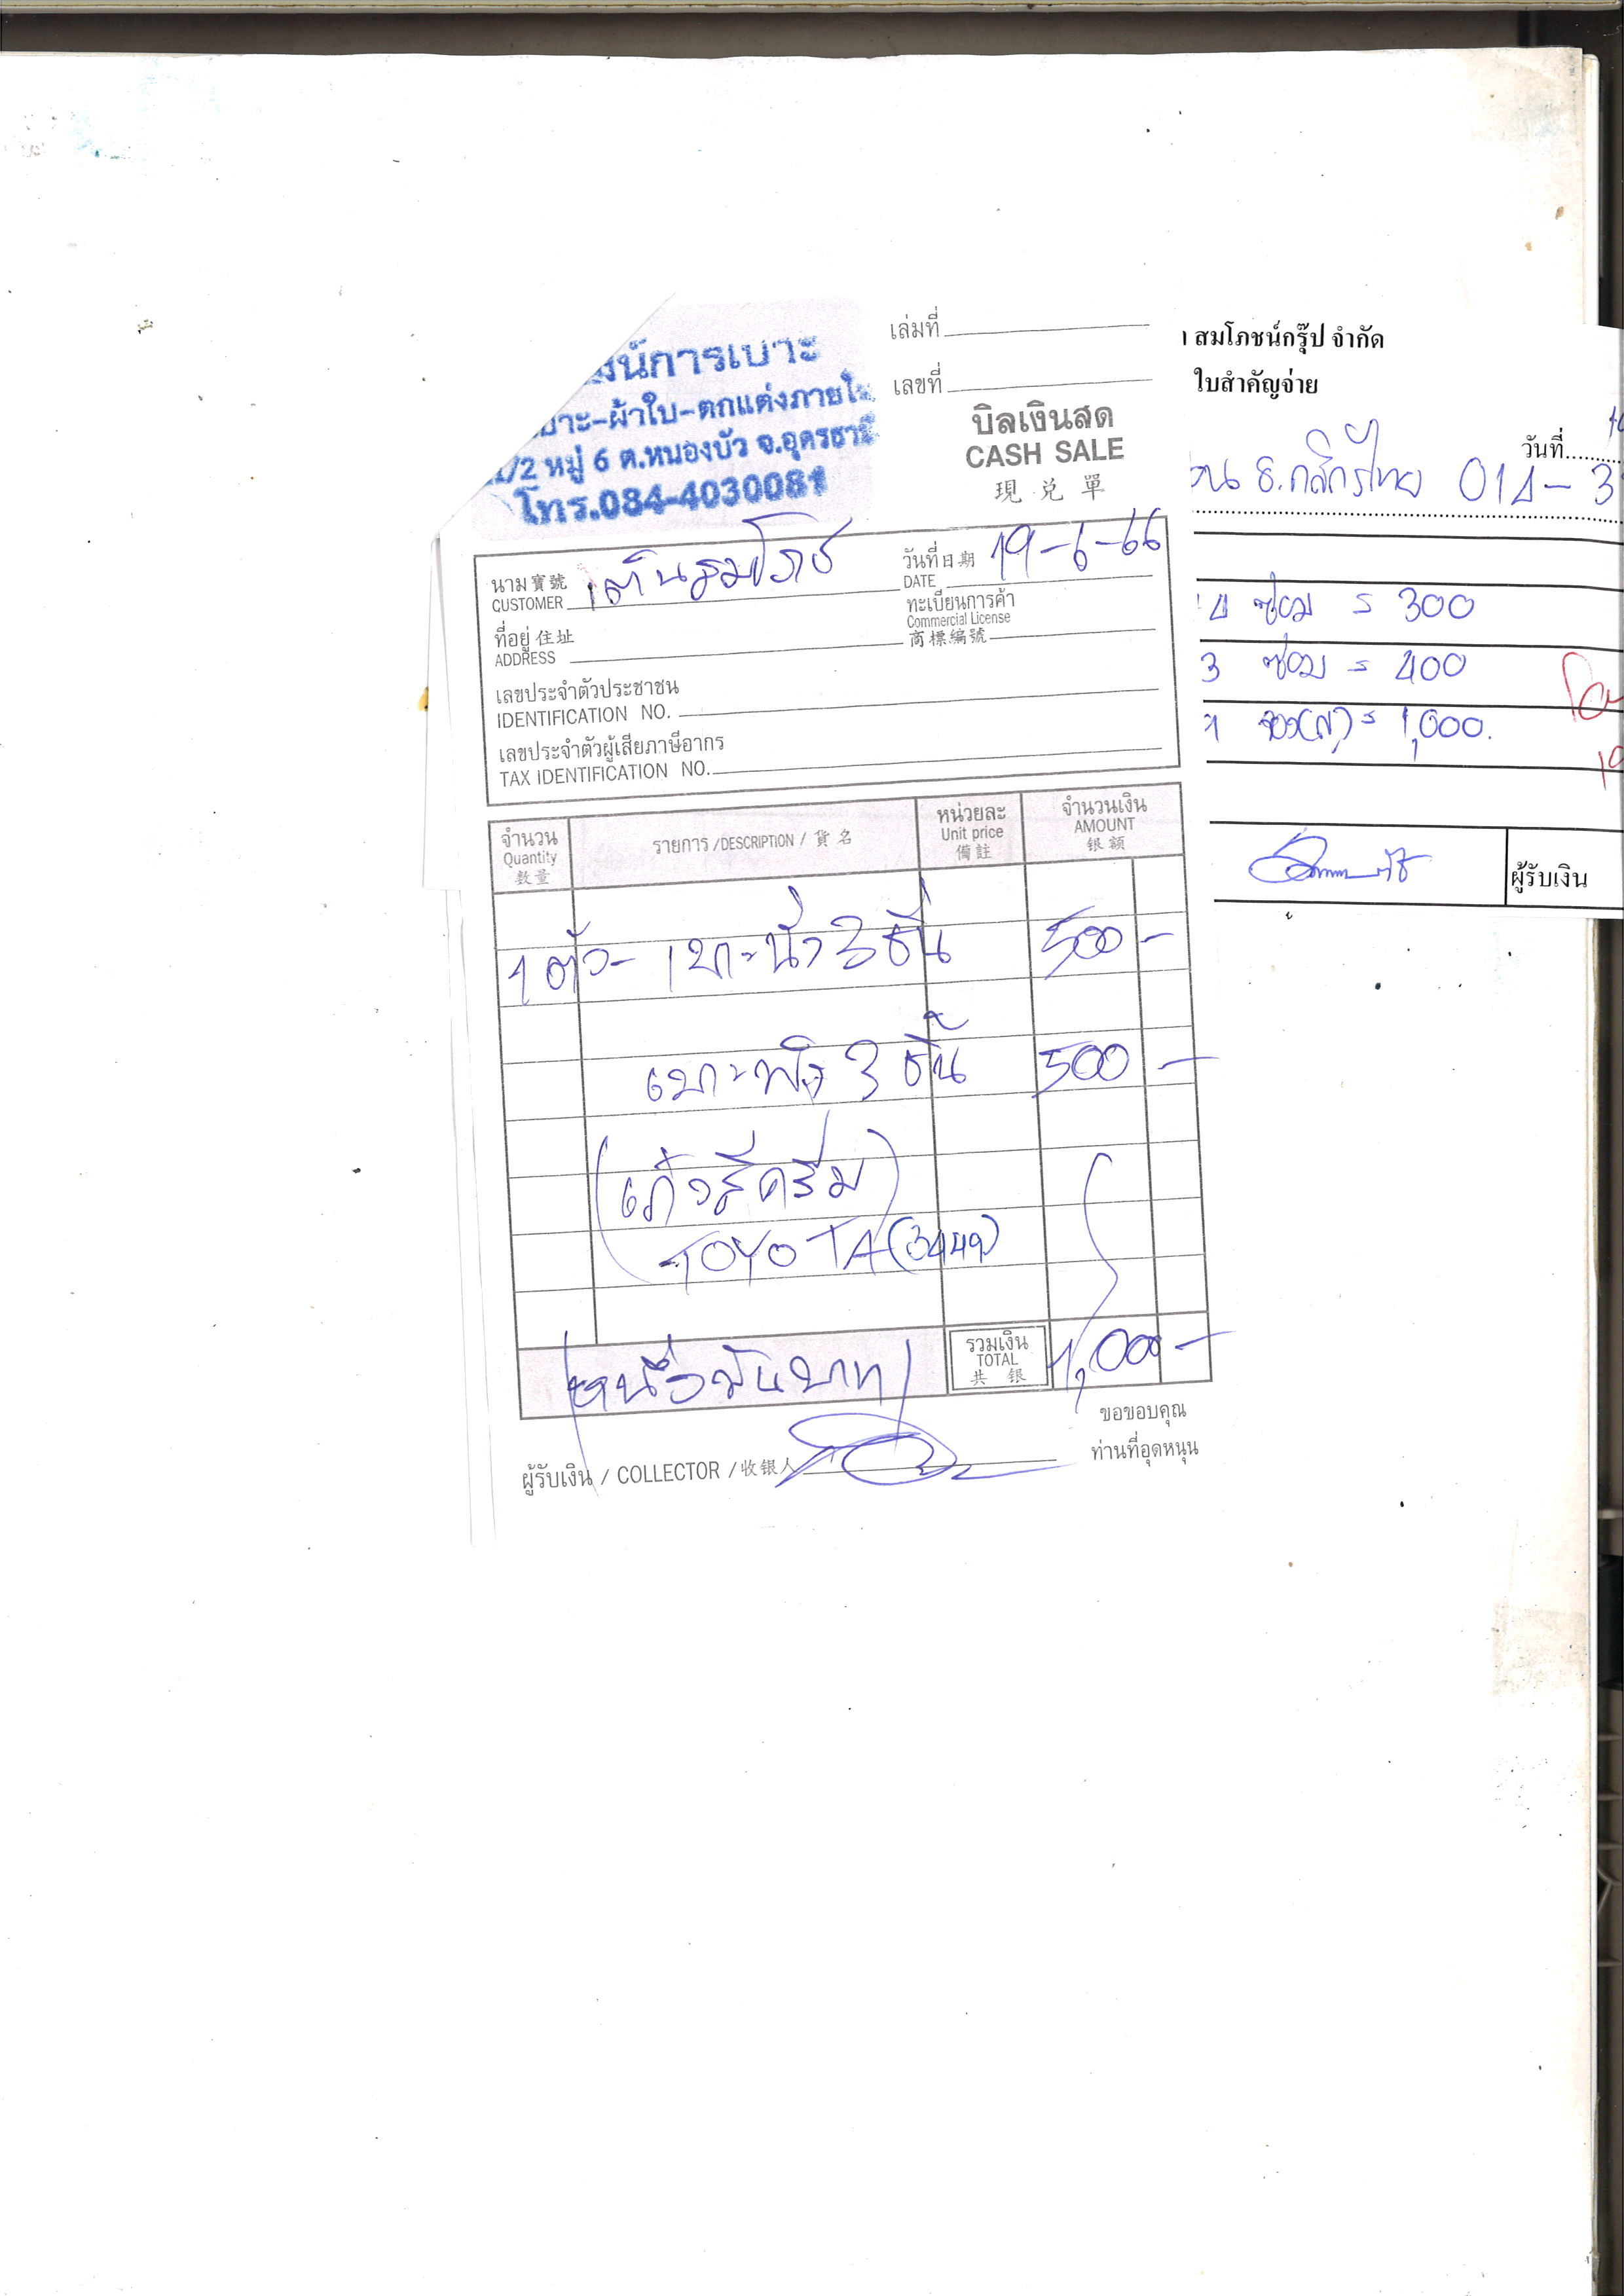 นน์การเบาะ
เบาะ-ผ้าใบ-ตกแต่งภายใน
/2 หมู่ 6 ต.หนองบัว จ.อุดรธานี
โทร.084-4030081
เล่มที่
เลขที่
บิลเงินสด
CASH SALE
現 兌 單
นาม 寶號
CUSTOMER
วันที่ 日期 19-6-66
DATE
ที่อยู่ 住址
ADDRESS
ทะเบียนการค้า
Commercial License
商標編號
เลขประจำตัวประชาชน
IDENTIFICATION NO.
เลขประจำตัวผู้เสียภาษีอากร
TAX IDENTIFICATION NO.
จำนวน
Quantity
數量
รายการ /DESCRIPTION / 貨 名
หน่วยละ
Unit price
備註
จำนวนเงิน
AMOUNT
银 額
1 ตัว - เบาะนั่ง 3 ชิ้น 500 -
เบาะพิง 3 ชิ้น 500 -
(เก๋งสีครีม)
TOYOTA (3449)
(หนึ่งพันบาท)
รวมเงิน
TOTAL
共 银
1,000 -
ผู้รับเงิน / COLLECTOR /收银人
ขอขอบคุณ
ท่านที่อุดหนุน
สมโภชน์กรุ๊ป จำกัด
ใบสำคัญจ่าย
วันที่
ธ.กสิกรไทย 014-3
4 ซ่อม = 300
3 ซ่อม = 400
= 1,000.
ผู้รับเงิน